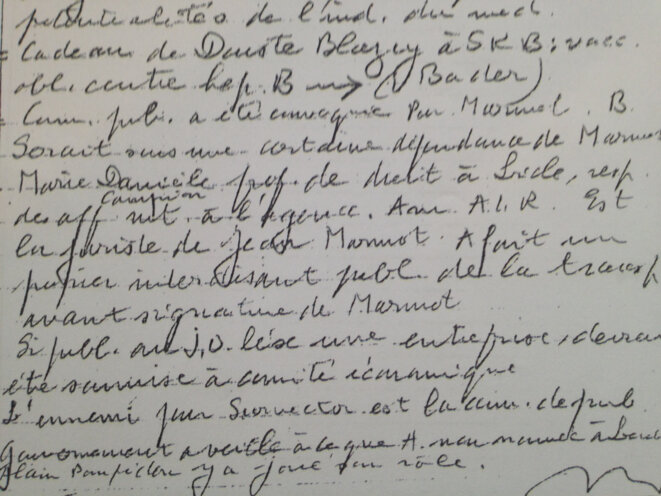 de l'ind. du med.
= Cadeau de Douste Blazy à SKB : vacc.
obl. contre hep. B → (Bader)
= Com. pub. a été convoquée par Marmot. B.
Serait sous une certaine dépendance de Marmot
Marie Danièle Campion prof. de droit à Lille, resp.
des aff. à l'agence. Am. A.I.R. Est
la juriste de Jean Marmot. A fait un
papier interdisant publ. de la transp
avant signature de Marmot
Si publ. au J.O. lèse une entreprise, devra
été soumise à comité économique
L'ennemi pour Survector est la com. de pub.
Gouvernement a veillé à ce que A. non nommé à
Alain Pompidou y a joué son rôle.